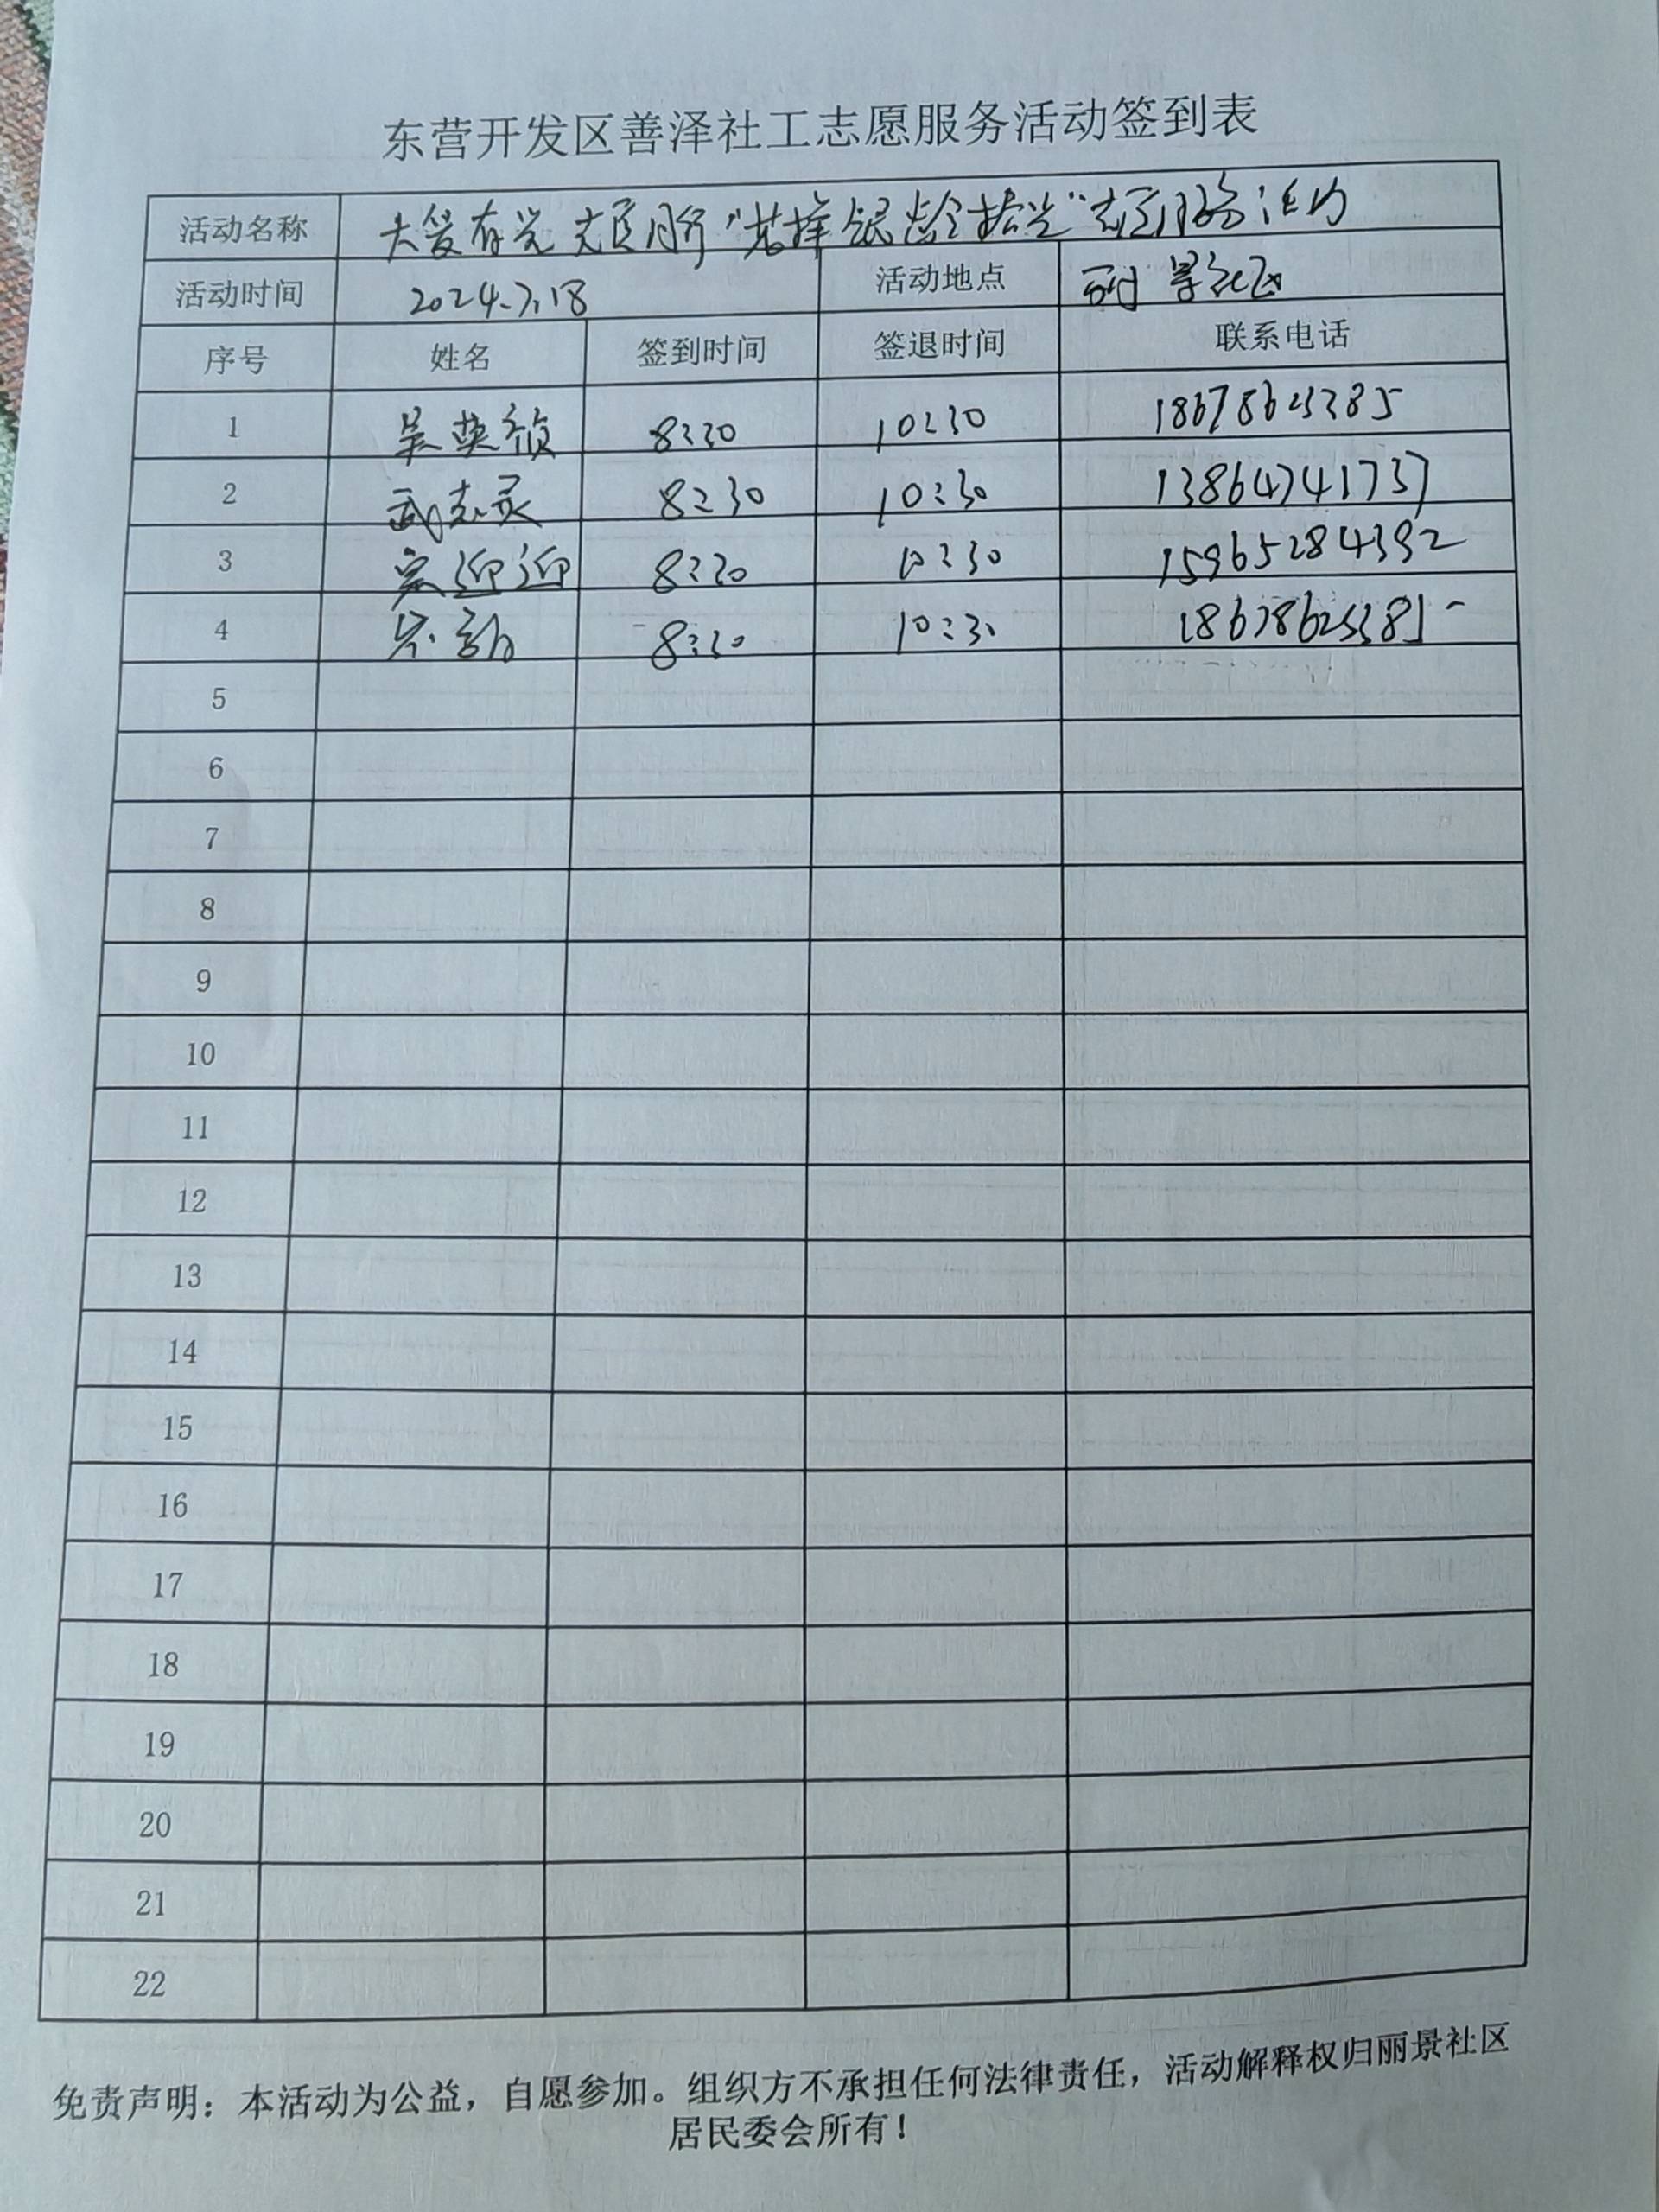 东营开发区善泽社工志愿服务活动签到表
活动名称 大爱有光 志愿 "银龄拾光"志愿服务活动
活动时间 2024.7.18 活动地点 丽景社区
序号 姓名 签到时间 签退时间 联系电话
1 吴英祯 8:30 10:30
2 武志灵 8:30 10:30 13864741737
3 宋迎迎 8:30 10:30 15965284392
4 8:30 10:30
5
6
7
8
9
10
11
12
13
14
15
16
17
18
19
20
21
22
免责声明：本活动为公益，自愿参加。组织方不承担任何法律责任，活动解释权归丽景社区
居民委会所有！